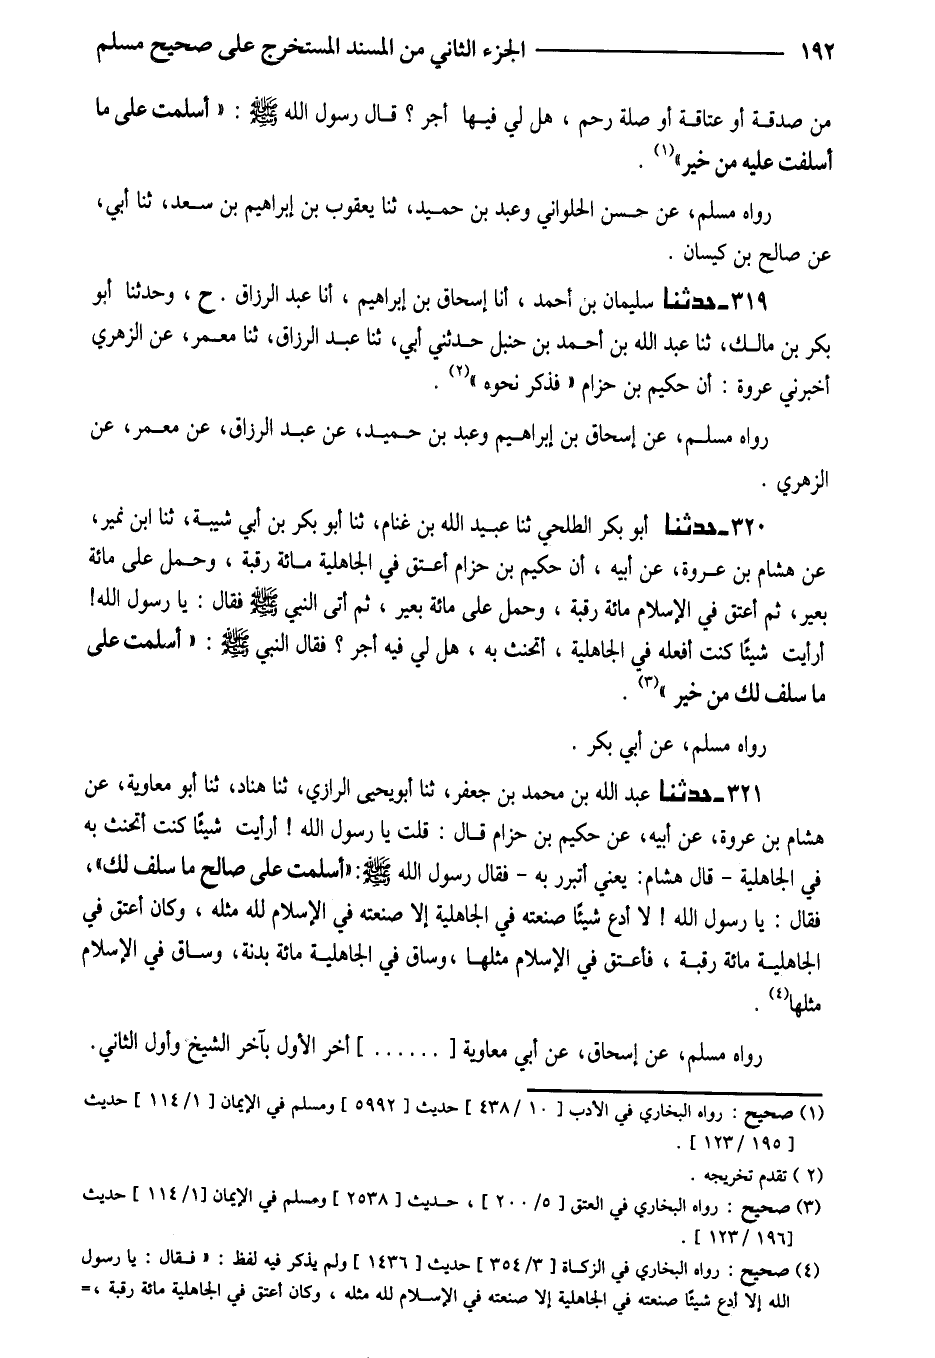 ١٩٢ ــــــــــــ الجزء الثاني من المسند المستخرج على صحيح مسلم
من صدقة أو عتاقة أو صلة رحم ، هل لي فيها أجر ؟ قال رسول الله ﷺ : « أسلمت على ما
أسلفت عليه من خير»(١) .
رواه مسلم، عن حسن الحلواني وعبد بن حميد، ثنا يعقوب بن إبراهيم بن سعد، ثنا أبي،
عن صالح بن كيسان .
٣١٩ـ حدثنا سليمان بن أحمد ، أنا إسحاق بن إبراهيم ، أنا عبد الرزاق . ح ، وحدثنا أبو
بكر بن مالك، ثنا عبد الله بن أحمد بن حنبل حدثني أبي، ثنا عبد الرزاق، ثنا معمر، عن الزهري
أخبرني عروة : أن حكيم بن حزام « فذكر نحوه »(٢) .
رواه مسلم، عن إسحاق بن إبراهيم وعبد بن حميد، عن عبد الرزاق، عن معمر، عن
الزهري .
٣٢٠ـ حدثنا أبو بكر الطلحي ثنا عبيد الله بن غنام، ثنا أبو بكر بن أبي شيبة، ثنا ابن نمير،
عن هشام بن عروة، عن أبيه ، أن حكيم بن حزام أعتق في الجاهلية مائة رقبة ، وحمل على مائة
بعير، ثم أعتق في الإسلام مائة رقبة ، وحمل على مائة بعير ، ثم أتى النبي ﷺ فقال : يا رسول الله!
أرأيت شيئًا كنت أفعله في الجاهلية ، أتحنث به ، هل لي فيه أجر ؟ فقال النبي ﷺ : « أسلمت على
ما سلف لك من خير »(٣) .
رواه مسلم، عن أبي بكر .
٣٢١ـ حدثنا عبد الله بن محمد بن جعفر، ثنا أبويحيى الرازي، ثنا هناد، ثنا أبو معاوية، عن
هشام بن عروة، عن أبيه، عن حكيم بن حزام قال : قلت يا رسول الله ! أرأيت شيئًا كنت أتحنث به
في الجاهلية - قال هشام: يعني أتبرر به - فقال رسول الله ﷺ:«أسلمت على صالح ما سلف لك»،
فقال : يا رسول الله ! لا أدع شيئًا صنعته في الجاهلية إلا صنعته في الإسلام لله مثله ، وكان أعتق في
الجاهلية مائة رقبة ، فأعتق في الإسلام مثلها ،وساق في الجاهلية مائة بدنة، وساق في الإسلام
مثلها(٤) .
رواه مسلم، عن إسحاق، عن أبي معاوية [ ...... ] أخر الأول بآخر الشيخ وأول الثاني.
(١) صحيح : رواه البخاري في الأدب [ ١٠ /٤٣٨ ] حديث [ ٥٩٩٢ ] ومسلم في الإيمان [ ١١٤/١ ] حديث
[ ١٩٥ /١٢٣ ] .
(٢ ) تقدم تخريجه .
(٣) صحيح : رواه البخاري في العتق [ ٥/ ٢٠٠ ] ، حديث [ ٢٥٣٨ ] ومسلم في الإيمان [١١٤/١ ] حديث
[١٩٦/ ١٢٣ ] .
(٤) صحيح : رواه البخاري في الزكاة [ ٣٥٤/٣ ] حديث [ ١٤٣٦ ] ولم يذكر فيه لفظ : « فقال : يا رسول
الله إلا أدع شيئًا صنعته في الجاهلية إلا صنعته في الإسلام لله مثله ، وكان أعتق في الجاهلية مائة رقبة ،=